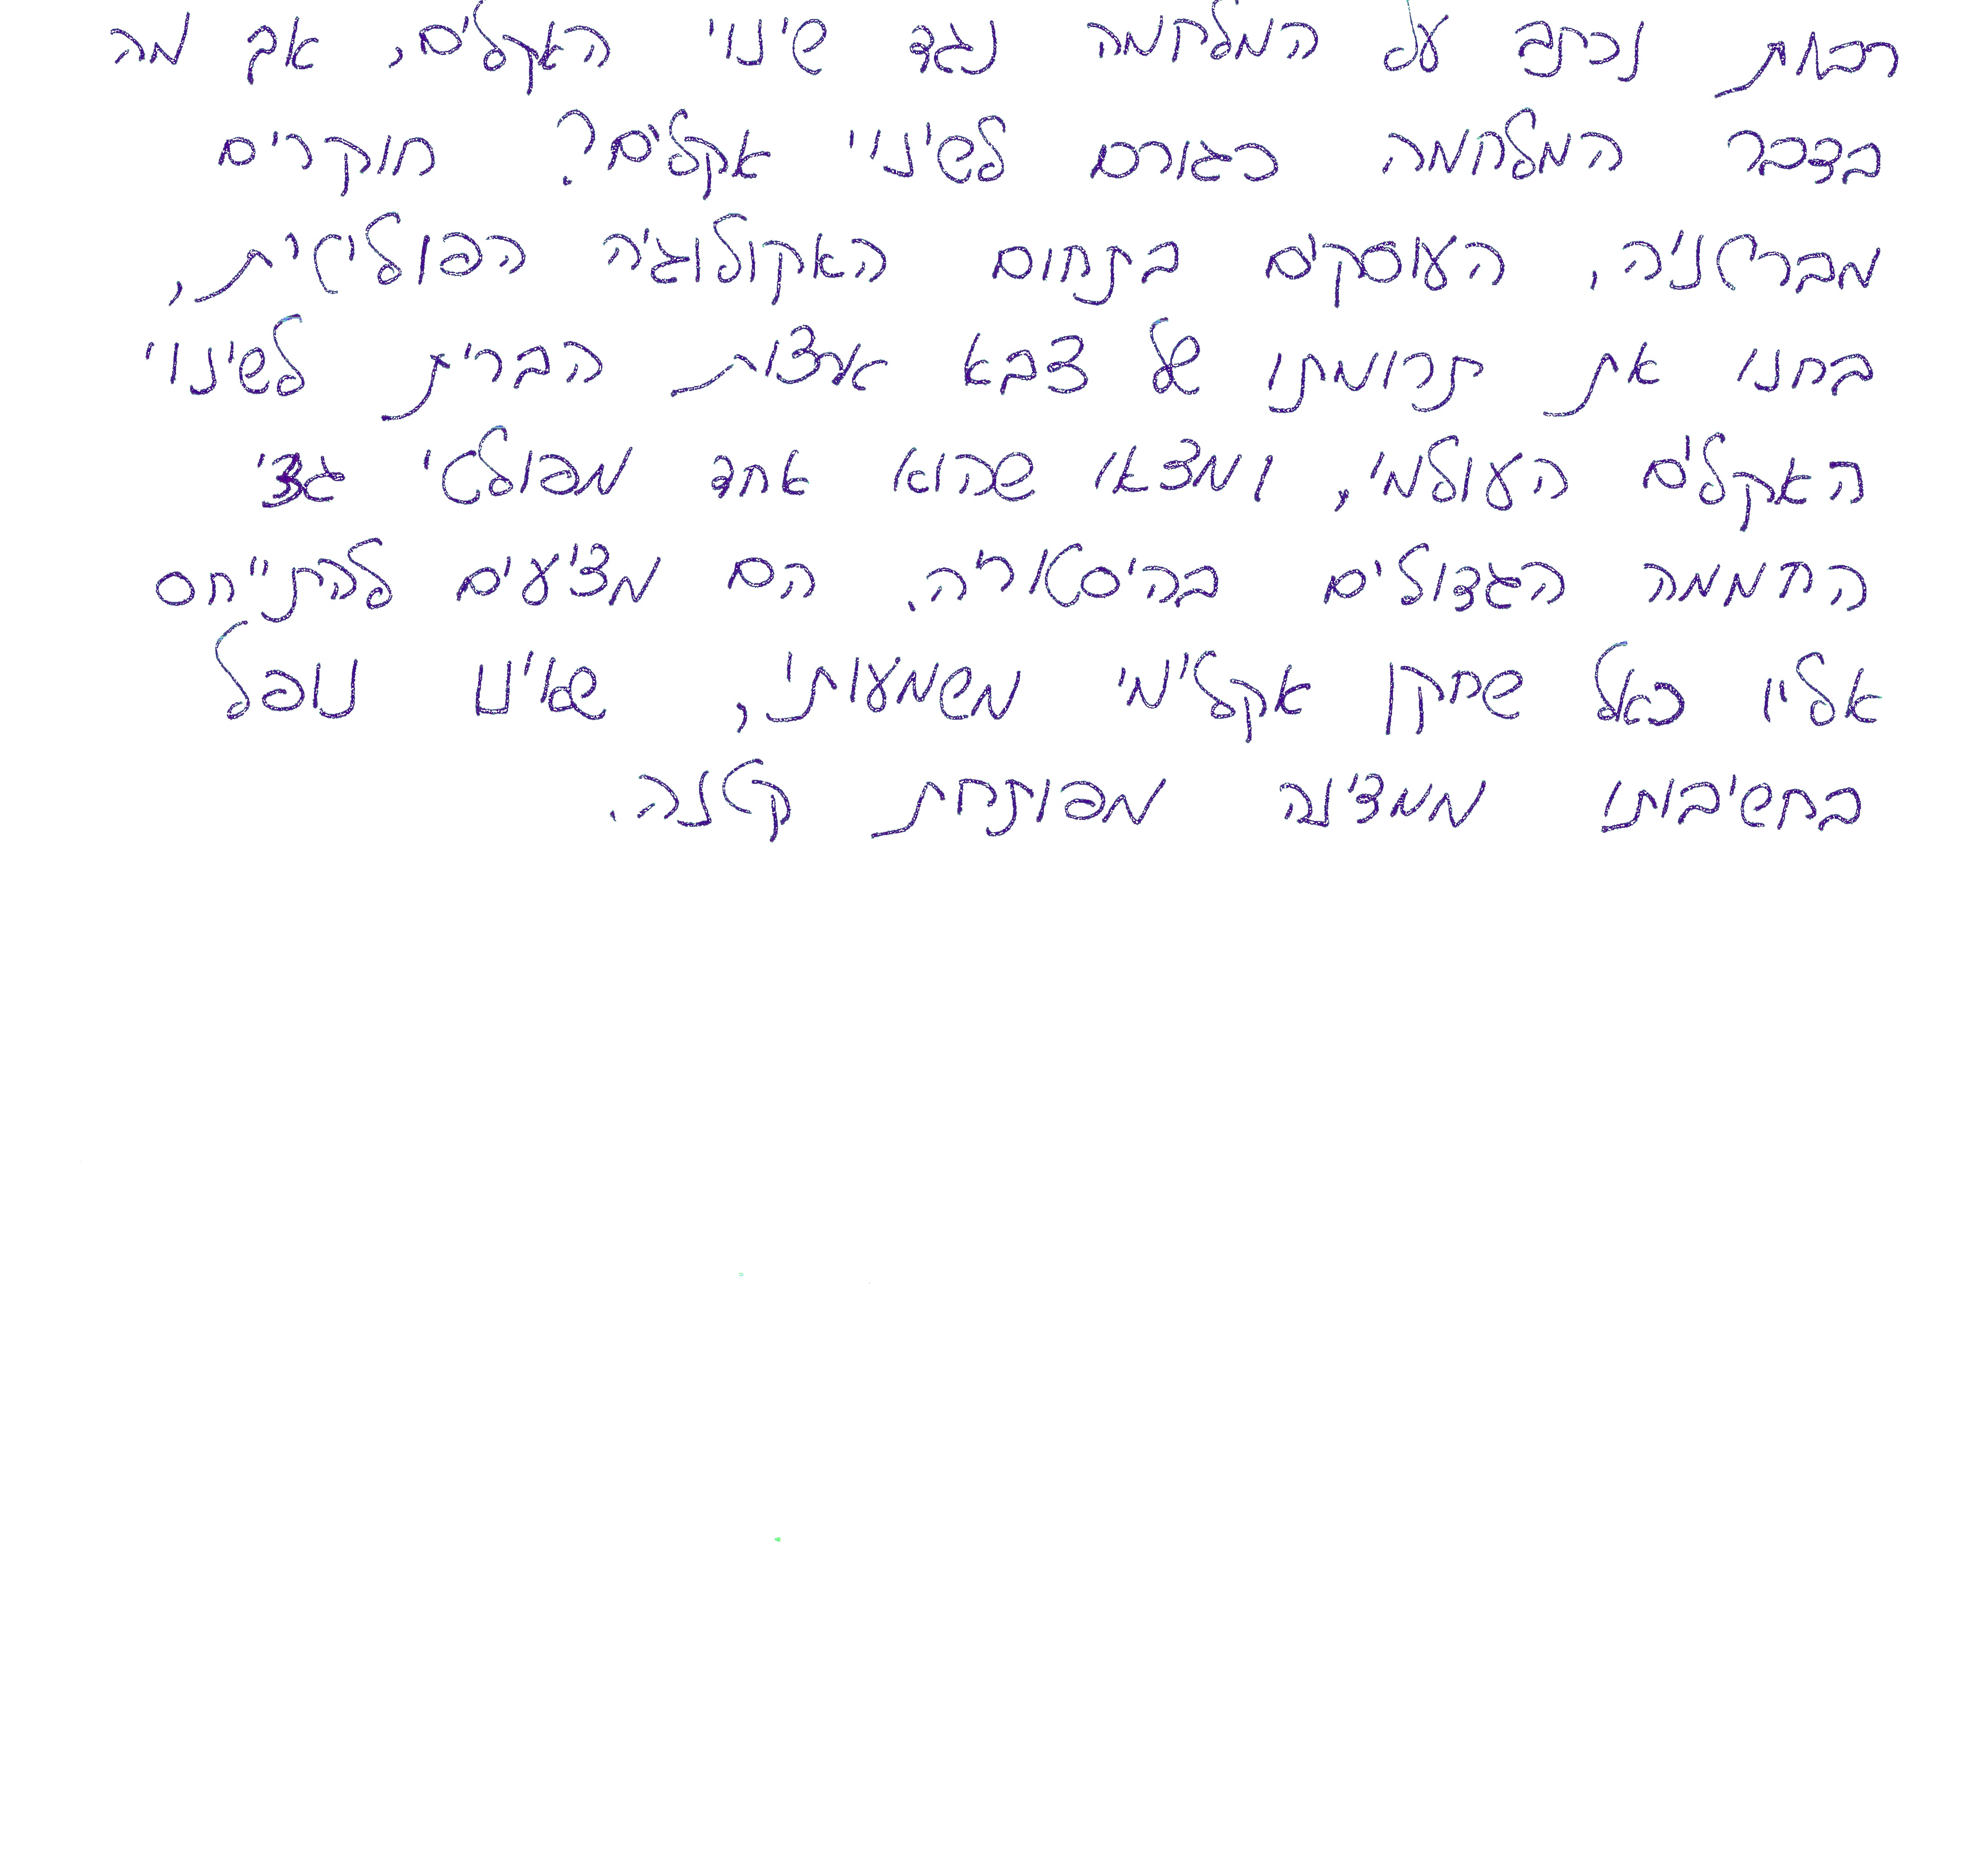 רבות נכתב על המלחמה נגד שינוי האקלים, אך מה
בדבר המלחמה כגורם לשינוי אקלים? חוקרים
מבריטניה, העוסקים בתחום האקולוגיה הפוליטית,
בחנו את תרומתו של צבא ארצות הברית לשינוי
האקלים העולמי, ומצאו שהוא אחד מפולטי גזי
החממה הגדולים בהיסטוריה. הם מציעים להתייחס
אליו כאל שחקן אקלימי משמעותי, שאינו נופל
בחשיבותו ממדינה מפותחת קטנה.